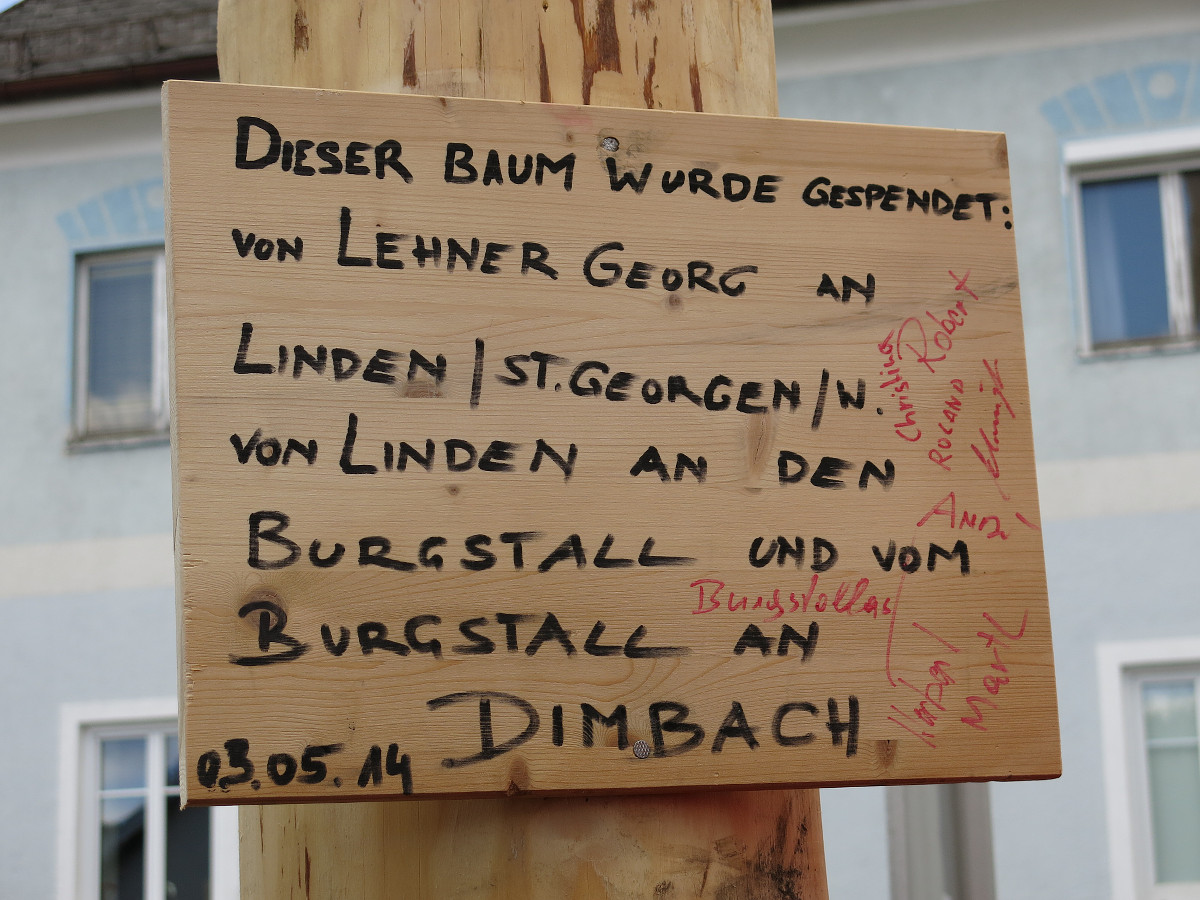 DIESER BAUM WURDE GESPENDET:
VON LEHNER GEORG AN
LINDEN/ST.GEORGEN/W.
VON LINDEN AN DEN
BURGSTALL UND VOM
BURGSTALL AN
DIMBACH
03.05.14
Christina
Robert
ROLAND
Martl